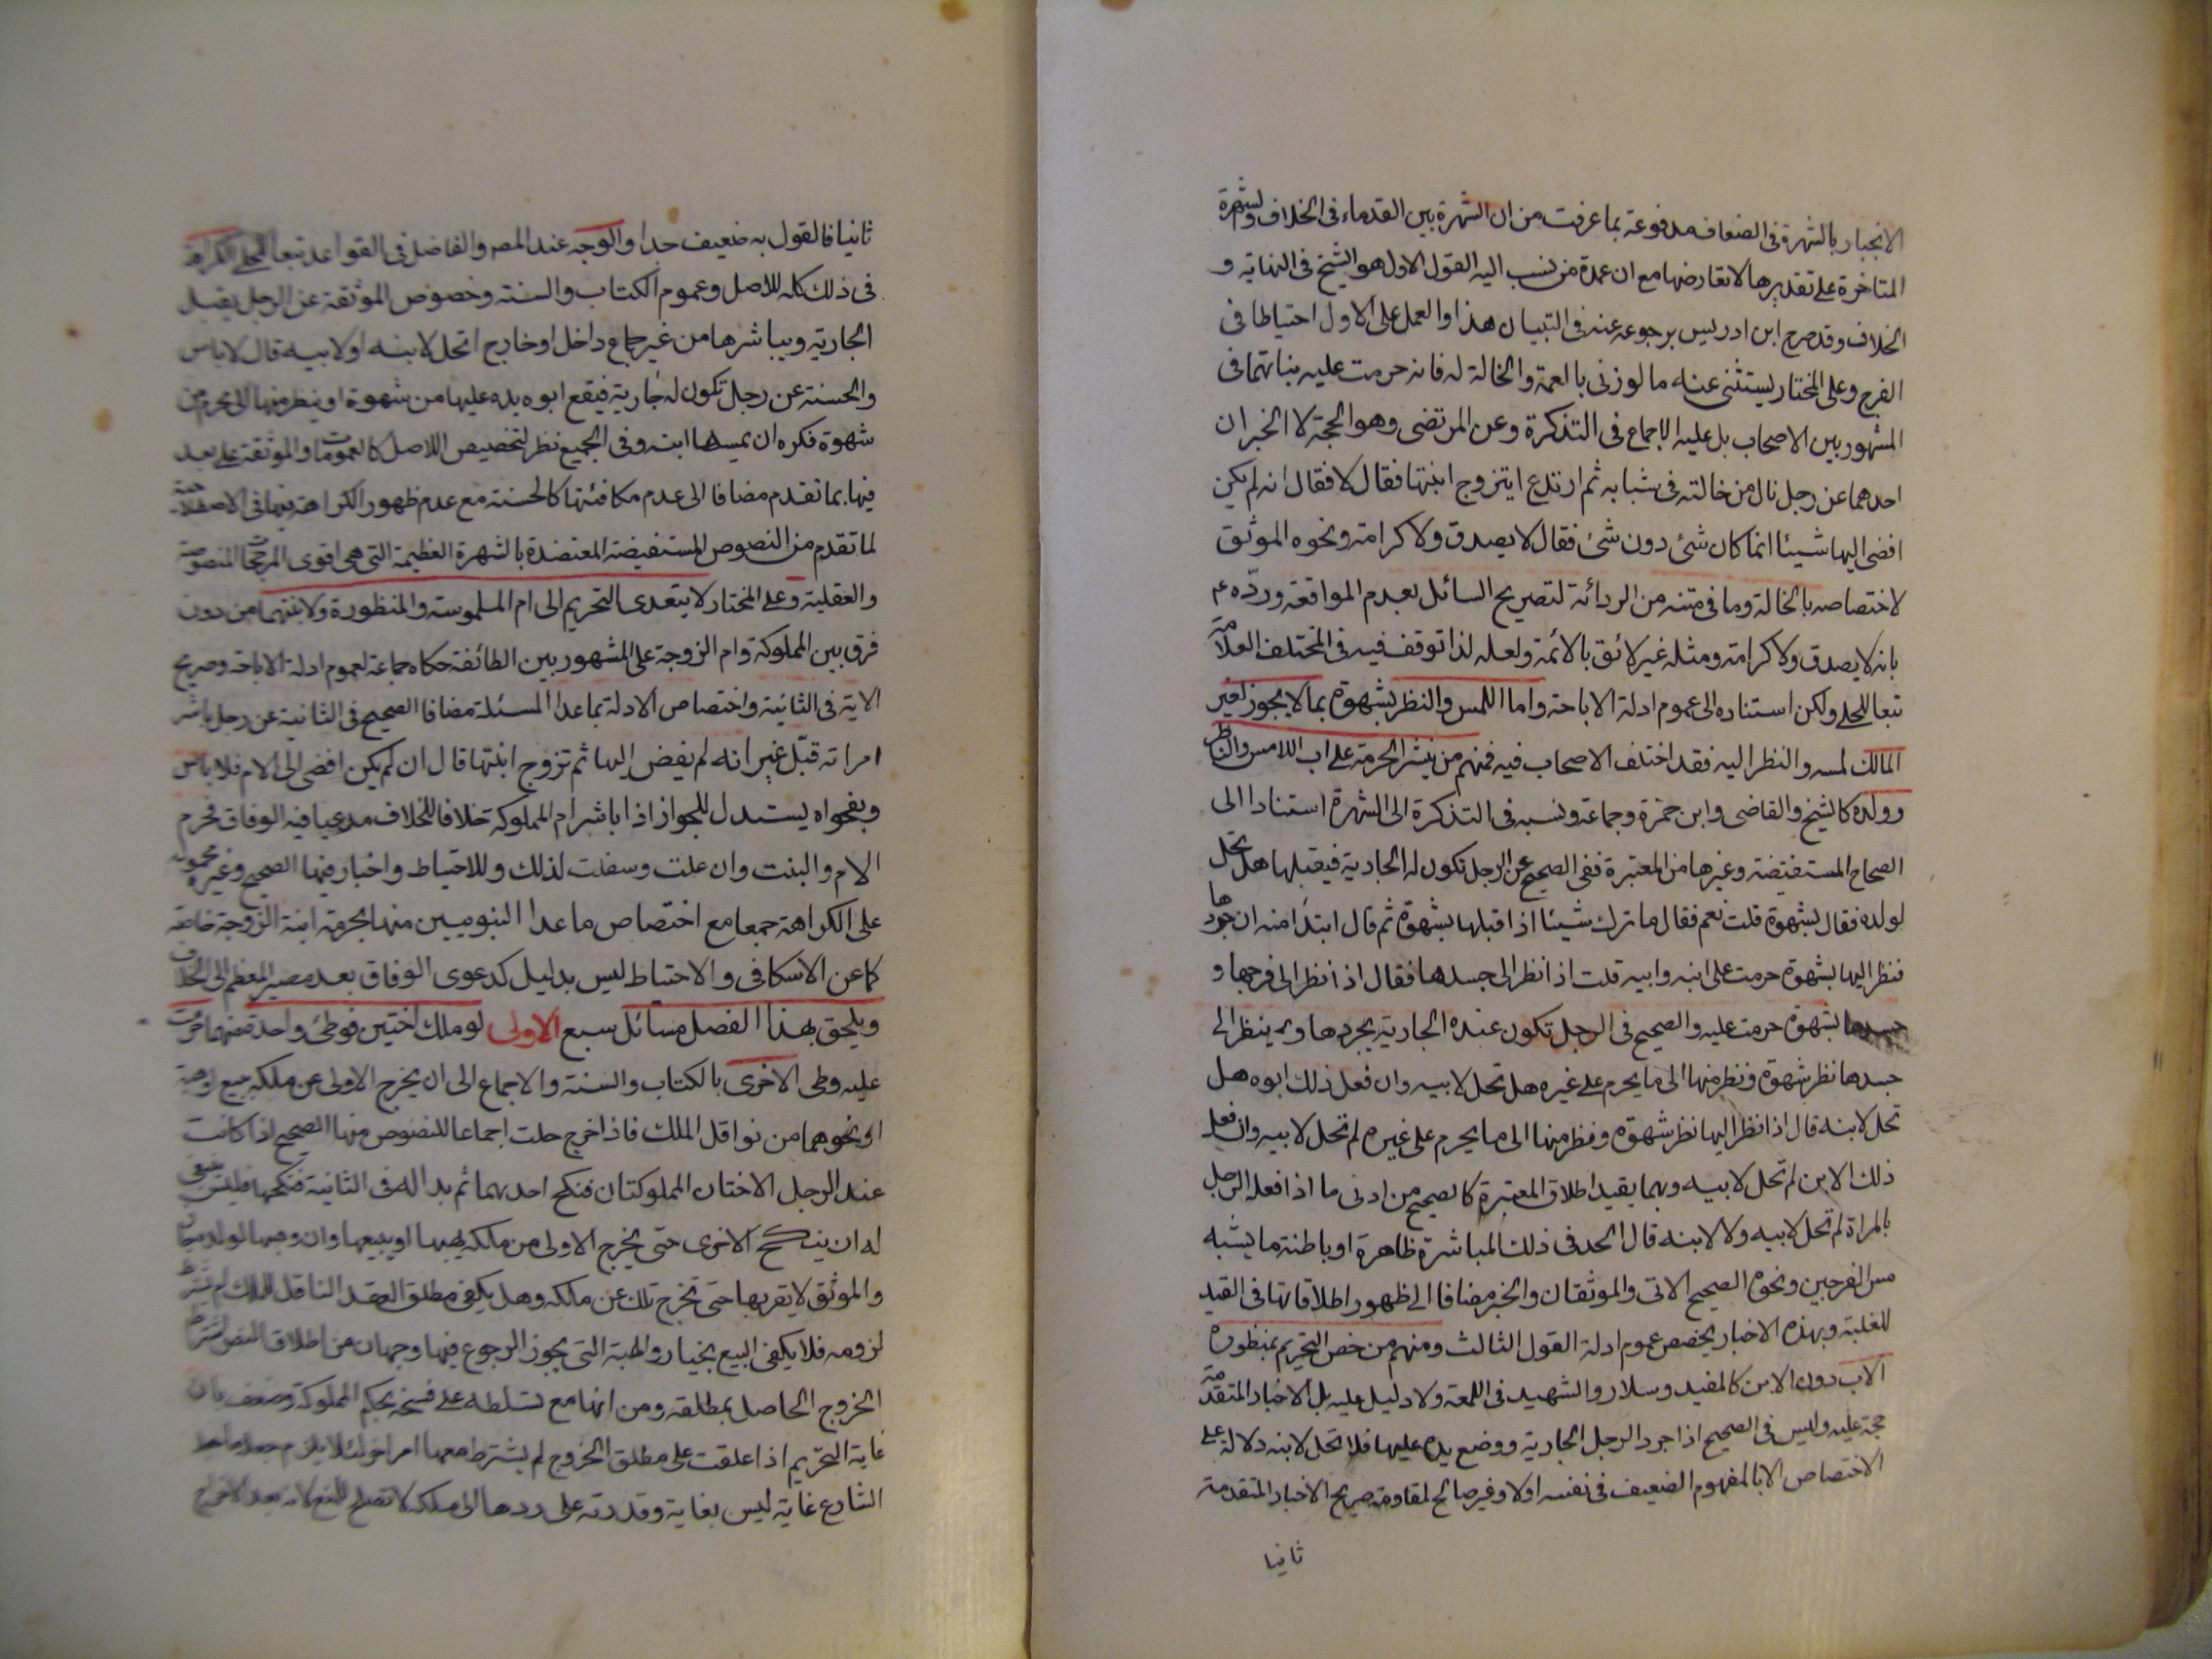 الانجبار بالشهرة فى الضعاف مدفوعة بما عرفت من ان الشهرة بين القدماء فى الخلاف والشهرة
المتاخرة على تقديرها لا تعارضها مع ان عمدة من نسب اليه القول الاول هو الشيخ فى النهاية و
الخلاف وقد صرح ابن ادريس برجوعه عنه فى التبيان هذا والعمل على الاول احتياطا فى
الفرج وعلى المختار يستثنى عنه ما لو زنى بالعمة والخالة له فانه حرمت عليه بناتهما فى
المشهور بين الاصحاب بل عليه الاجماع فى التذكرة وعن المرتضى وهو الحجة لا الخبران
احدهما عن رجل نال من خالته فى شبابه ثم ارتدع ايتزوج ابنتها فقال لا فقال انه لم يكن
افضى اليها شيئا انما كان شئ دون شئ فقال لا يصدق ولا كرامة ونحوه الموثق
لاختصاصه بالخالة وما فى متنه من الردائة لتصريح السائل بعدم المواقعة وردّه ع
بانه لا يصدق ولا كرامة ومثله غير لائق بالائمة ولعله لذا توقف فيه فى المختلف العلامة
تبعا للحلى ولكن استناده الى عموم ادلة الاباحة واما اللمس والنظر بشهوة بما لا يجوز لغير
المالك لمسه والنظر اليه فقد اختلف الاصحاب فيه فمنهم من ينشر الحرمة على اب اللامس والناظر
وولده كالشيخ والقاضى وابن حمزة وجماعة ونسبه فى التذكرة الى الشهرة استنادا الى
الصحاح المستفيضة وغيرها من المعتبرة ففى الصحيح عن الرجل تكون له الجارية فيقبلها هل تحل
لولده فقال بشهوة قلت نعم فقال ما ترك شيئا اذا قبلها بشهوة ثم قال ابتداء منه ان جردها
فنظر اليها بشهوة حرمت على ابنه وابيه قلت اذا نظر الى جسدها فقال اذا نظر الى فرجها و
جسدها بشهوة حرمت عليه والصحيح فى الرجل تكون عنده الجارية يجردها وينظر الى
جسدها نظر شهوة ونظر منها الى ما يحرم على غيره هل تحل لابيه وان فعل ذلك ابوه هل
تحل لابنه قال اذا نظر اليها نظر شهوة ونظر منها الى ما يحرم على غيره لم تحل لابيه وان فعل
ذلك الابن لم تحل لابيه وبهما يقيد اطلاق المعتبرة كالصحيح من ادنى ما اذا فعله الرجل
بالمراة لم تحل لابيه ولا لابنه قال الحد فى ذلك المباشرة ظاهرة او باطنة ما يشبه
مس الفرجين ونحوه الصحيح الاتى والموثقان والخبر مضافا الى ظهور اطلاقاتها فى القيد
للغلبة وبهذه الاخبار يخصص عموم ادلة القول الثالث ومنهم من خص التحريم بمنظورة
الاب دون الابن كالمفيد وسلار والشهيد فى اللمعة ولا دليل عليه بل الاخبار المتقدمة
حجة عليه وليس فى الصحيح اذا جرد الرجل الجارية ووضع يده عليها فلا تحل لابنه دلالة على
الاختصاص الا بالمفهوم الضعيف فى نفسه اولا وغير صالح لمقاومة صريح الاخبار المتقدمة
ثانيا
ثانيا فالقول به ضعيف جدا والوجه عند المصر والفاضل فى القواعد تبعا للحلى الكراهة
فى ذلك كله للاصل وعموم الكتاب والسنة وخصوص الموثقة عن الرجل يقبل
الجارية ويباشرها من غير جماع داخل او خارج اتحل لابنه او لابيه قال لا باس
والحسنة عن رجل تكون له جارية فيقع ابوه يده عليها من شهوة او ينظر منها الى محرم من
شهوة فكره ان يمسها ابنه وفى الجميع نظر لتخصيص الاصل كالعمومات والموثقة على بعد
فيها بما تقدم مضافا الى عدم مكافئتها كالحسنة مع عدم ظهور الكراهة فيها فى الاصطلاحية
لما تقدم من النصوص المستفيضة المعتضدة بالشهرة العظيمة التى هى اقوى المرجحات المنصوصة
والعقلية وعلى المختار لا يتعدى التحريم الى ام الملموسة والمنظورة ولا بنتهما من دون
فرق بين المملوكة وام الزوجة على المشهور بين الطائفة حكاه جماعة لعموم ادلة الاباحة وصريح
الاية فى الثانية واختصاص الادلة بما عدا المسئلة مضافا الصحيح فى الثانية عن رجل باشر
امراته قبّل غير انه لم يفض اليها ثم تزوج ابنتها قال ان لم يكن افضى الى الام فلا باس
وبفحواه يستدل للجواز اذا باشر ام المملوكة خلافا للخلاف مدعيا فيه الوفاق فحرم
الام والبنت وان علت وسفلت لذلك وللاحتياط واخبار فيها الصحيح وغيره محمولة
على الكراهة جمعا مع اختصاص ما عدا النبويين منها بحرمة ابنة الزوجة خاصة
كما عن الاسكافى والاحتياط ليس بدليل كدعوى الوفاق بعد مصير المعظم الى الخلاف
ويلحق بهذا الفصل مسائل سبع الاولى لو ملك اختين فوطئ واحدة منهما حرمت
عليه وطى الاخرى بالكتاب والسنة والاجماع الى ان يخرج الاولى عن ملكه ببيع او هبة
او نحوهما من نواقل الملك فاذا خرج حلت اجماعا للنصوص منها الصحيح اذا كانت
عند الرجل الاختان المملوكتان فنكح احديهما ثم بدا له فى الثانية فنكحها فليس ينبغى
له ان ينكح الاخرى حتى يخرج الاولى من ملكه يهبها او يبيعها وان وهبها لولده
والموثق لا يقربها حتى تخرج تلك عن ملكه وهل يكفى مطلق العقد الناقل للملك ام يشترط
لزومه فلا يكفى البيع بخيار والهبة التى يجوز الرجوع فيها وجهان من اطلاق النص اشتراط
الخروج الحاصل بمطلقه ومن انها مع تسلطه على فسخه بحكم المملوكة وضعف بان
غاية التحريم اذا علقت على مطلق الخروج لم يشترط معها امر اخر لئلا يلزم جعل ما جعله
الشارع غاية ليس بغاية وقدرته على ردها الى ملكه لا تصلح للمنع لانه بعد الاخراج